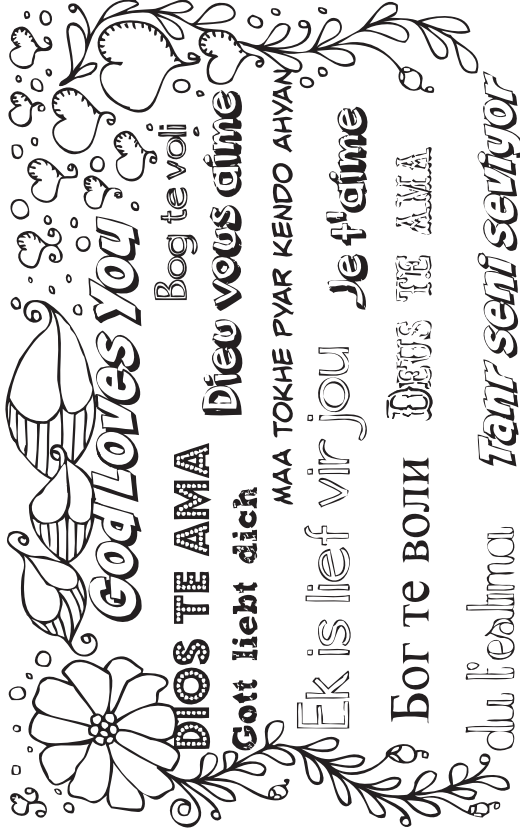 God Loves You
DIOS TE AMA Bog te voli
Gott liebt dich Dieu vous aime
MAA TOKHE PYAR KENDO AHYAN
Ek is lief vir jou Je t'aime
Бог те воли DEUS TE AMA
du l'estima Tanr seni seviyor